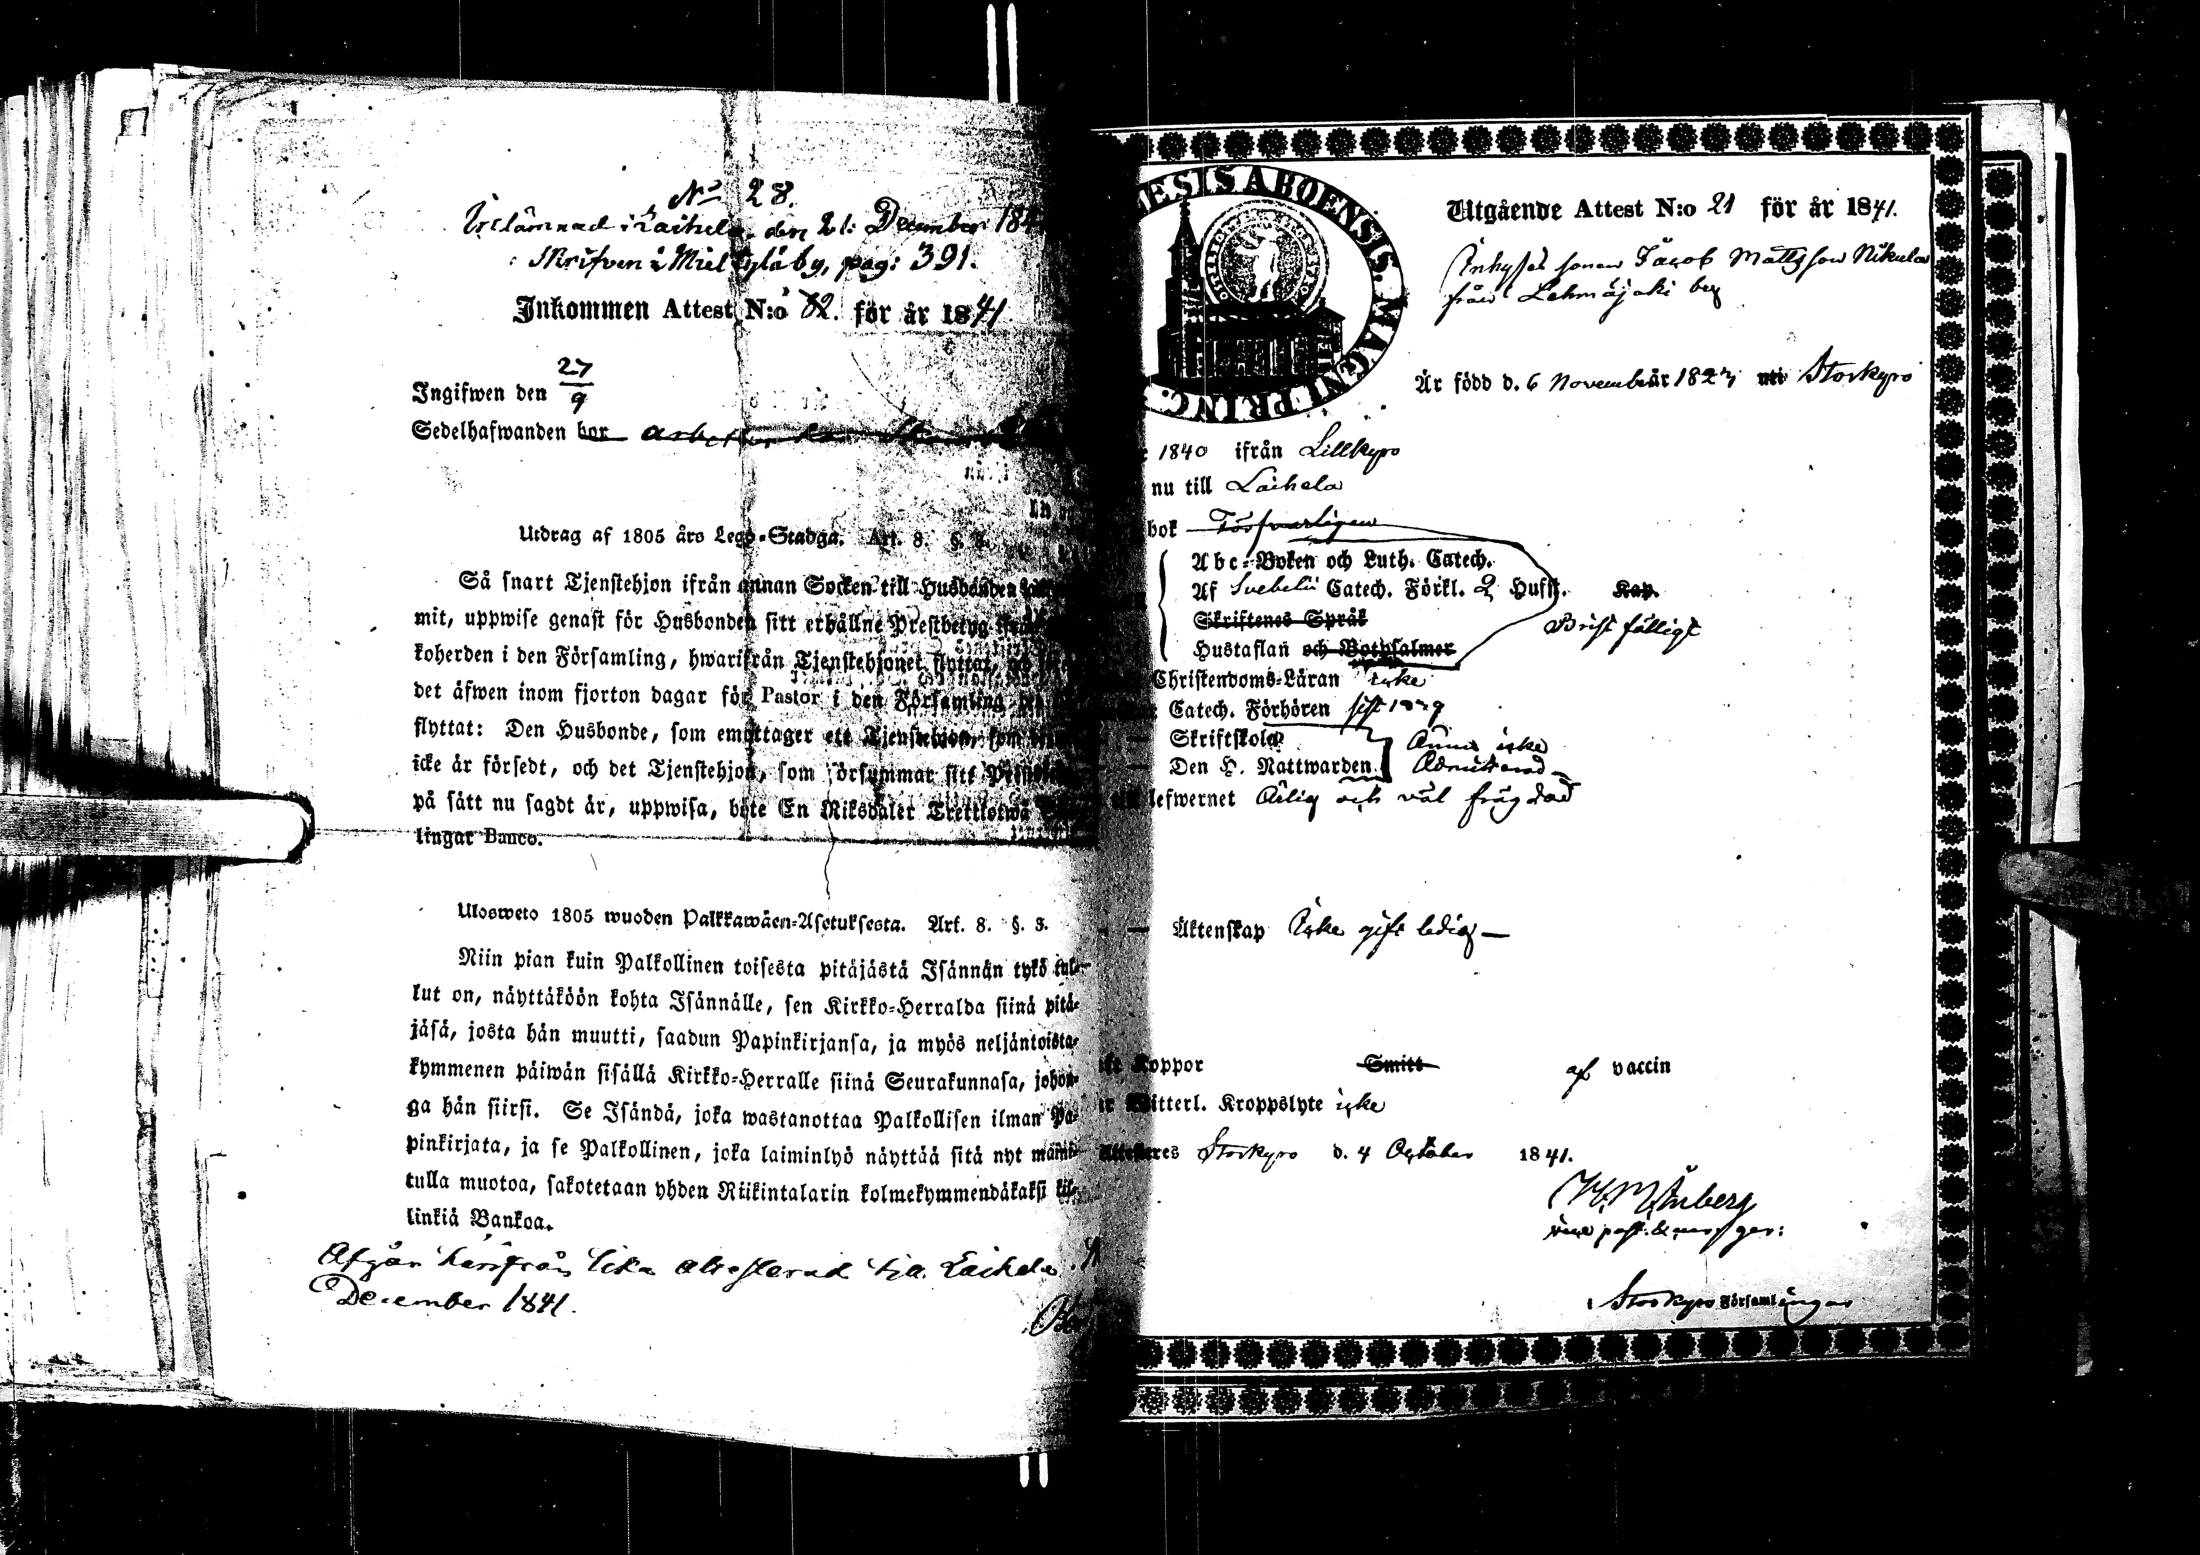 No 28.
Inlämnad i Laihela den 21 December 184
Skrifven i Miel by, pag: 391.
Inkommen Attest N:o 82. för år 1841
Ingifwen den 27/9
Sedelhafwanden bor
Utdrag af 1805 års Lego-Stadga. Art. 8. §. 3.
Så snart Tjenstehjon ifrån annan Socken till Husbonden
mit, uppwise genast för Husbonden sitt erhållne Prestbetyg
koherden i den Församling, hwarifrån Tjenstehjonet flyttat, och
det äfwen inom fjorton dagar för Pastor i den Församling
flyttat: Den Husbonde, som emottager ett Tjenstehjon, som
icke är försedt, och det Tjenstehjon, som försummar sitt
på sätt nu sagdt är, uppwisa, böte En Riksdaler Trettiotwå
lingar Banco.
Ulosweto 1805 wuoden Palkkawäen-Asetuksesta. Art. 8. §. 3.
Niin pian kuin Palkollinen toisesta pitäjästä Isännän tykö tul-
lut on, näyttäköön kohta Isännälle, sen Kirkko-Herralda siinä pitä-
jäsä, josta hän muutti, saadun Papinkirjansa, ja myös neljäntoista-
kymmenen päiwän sisällä Kirkko-Herralle siinä Seurakunnasa, johon-
ga hän siirsi. Se Isändä, joka wastanottaa Palkollisen ilman Pa-
pinkirjata, ja se Palkollinen, joka laiminlyö näyttää sitä nyt mainit-
tulla muotoa, sakotetaan yhden Riikintalarin kolmekymmendäkaksi kil-
linkiä Bankoa.
Afgår härifrån lika attesterad till Laihela
December 1841.
ESIS ABOENSIS. MAGNI PRINC.
Utgående Attest N:o 21 för år 1841.
Inhyses sonen Jacob Mattsson Nikula
från Lehmäjoki by
Är född d. 6 November år 1823 uti Storkyro
1840 ifrån Lillkyro
nu till Laihela
bok Försvarligen
Abc-Boken och Luth. Catech.
Af Svebelii Catech. Förkl. 2 Hufst. Kap.
Skriftenes Språk
Brist fälligt
Hustaflan och Botpsalmer
Christendoms-Läran icke
Catech. Förhören sist 1839
Skriftskola Ännu icke
Den H. Nattwarden Admitterad
lefwernet Ärlig och väl frägdad
Äktenskap Icke gift ledig
Koppor Smitt af vaccin
Witterl. Kroppslyte icke
Attesteres Storkyro d. 4 October 1841.
i Storkyro Församlingar